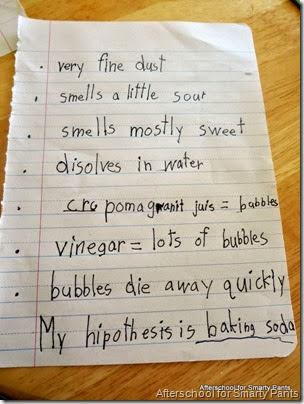 . very fine dust
. smells a little sour
. smells mostly sweet
. disolves in water
. cro pomagranit juis = bubbles
. vinegar = lots of bubbles
. bubbles die away quickly
My hipothesis is baking soda
Afterschool for Smarty Pants
Afterschool for Smarty Pants